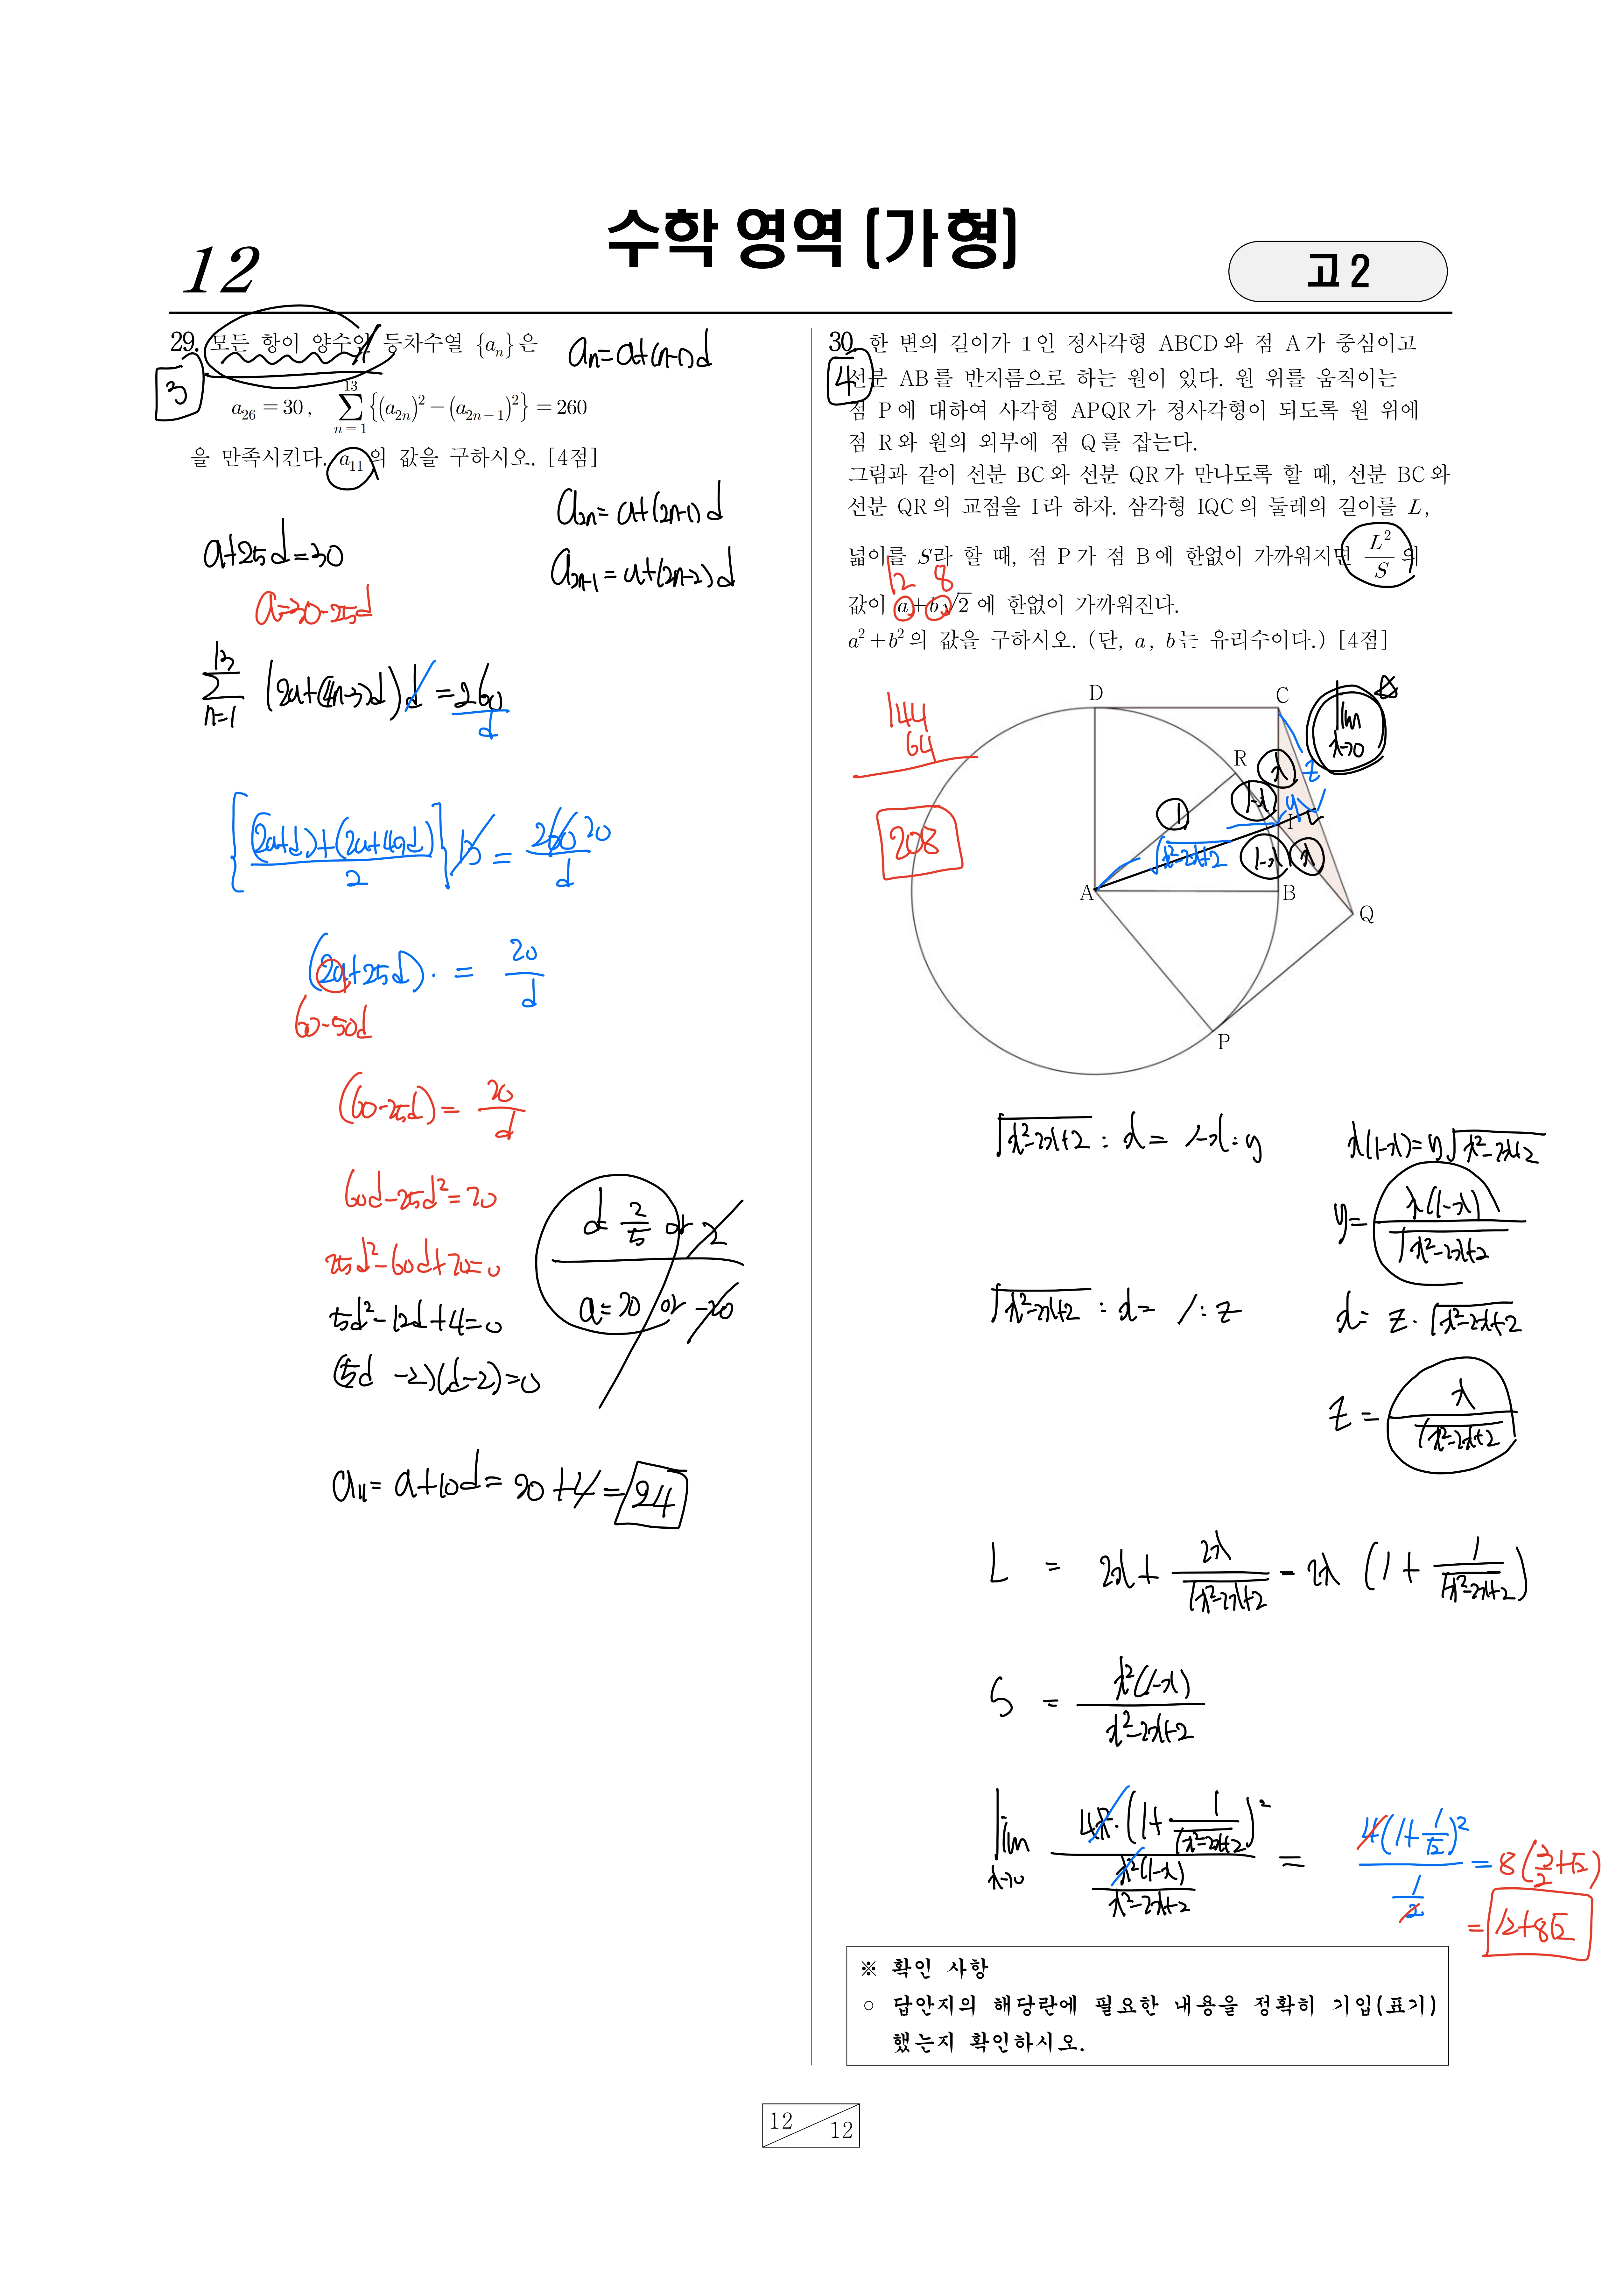 12
수학 영역 (가형)
고 2
29. 모든 항이 양수인 등차수열 {aₙ}은
a₂₆ = 30, ∑ₙ₌₁¹³ {(a₂ₙ)² − (a₂ₙ₋₁)²} = 260
을 만족시킨다. a₁₁의 값을 구하시오. [4점]
3
aₙ = a+(n-1)d
a₂ₙ = a+(2n-1)d
a₂ₙ₋₁ = a+(2n-2)d
a+25d=30
a=30-25d
∑ₙ₌₁¹³ (2a+(4n-3)d)d = 260/d
{((2a+d)+(2a+49d))/2}13 = 260/d 20
(2a+25d)· = 20/d
60-50d
(60-25d) = 20/d
60d-25d²=20
25d²-60d+20=0
5d²-12d+4=0
(5d-2)(d-2)=0
d= 2/5 or 2
a=20 or -20
a₁₁= a+10d= 20+4= 24
30. 한 변의 길이가 1인 정사각형 ABCD와 점 A가 중심이고
선분 AB를 반지름으로 하는 원이 있다. 원 위를 움직이는
점 P에 대하여 사각형 APQR가 정사각형이 되도록 원 위에
점 R와 원의 외부에 점 Q를 잡는다.
그림과 같이 선분 BC와 선분 QR가 만나도록 할 때, 선분 BC와
선분 QR의 교점을 I라 하자. 삼각형 IQC의 둘레의 길이를 L,
넓이를 S라 할 때, 점 P가 점 B에 한없이 가까워지면 L²/S의
값이 a+b√2에 한없이 가까워진다.
a²+b²의 값을 구하시오. (단, a, b는 유리수이다.) [4점]
4
12 8
144
64
208
D
C
R
I
A
B
Q
P
lim x→0
x
z
1-x
y
1
√x²-2x+2
1-x
x
√x²-2x+2 : x = 1-x : y
x(1-x)=y√x²-2x+2
y= x(1-x)/√x²-2x+2
√x²-2x+2 : x = 1 : z
x= z·√x²-2x+2
z = x/√x²-2x+2
L = 2x+ 2x/√x²-2x+2 = 2x (1+ 1/√x²-2x+2)
S = x²(1-x)/x²-2x+2
lim x→0 4x²·(1+1/√x²-2x+2)² / (x²(1-x)/x²-2x+2) = 4(1+1/√2)² / (1/2) = 8(3/2+√2)
= 12+8√2
※ 확인 사항
○ 답안지의 해당란에 필요한 내용을 정확히 기입(표기)
했는지 확인하시오.
12
12